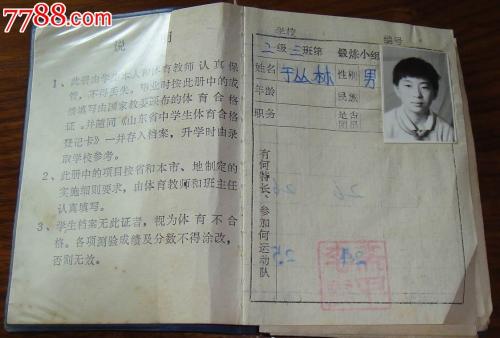 7788.com
说 明
1、此册由学生本人和体育教师认真保
管,不得丢失。毕业时按此册中的成
绩填写由国家教委颁布的体育合格
证。并随同《山东省中学生体育合格
登记卡》一并存入档案,升学时由录
取学校参考。
2、此册中的项目按省和本市、地制定的
实施细则要求,由体育教师和班主任
认真填写。
3、学生档案无此证者,视为体育不合
格。各项测验成绩及分数不得涂改,
否则无效。
学校 编号
2级三班第 锻炼小组
姓名 于丛林 性别 男
年龄 民族
职务 是否团员
有何特长、参加何运动队